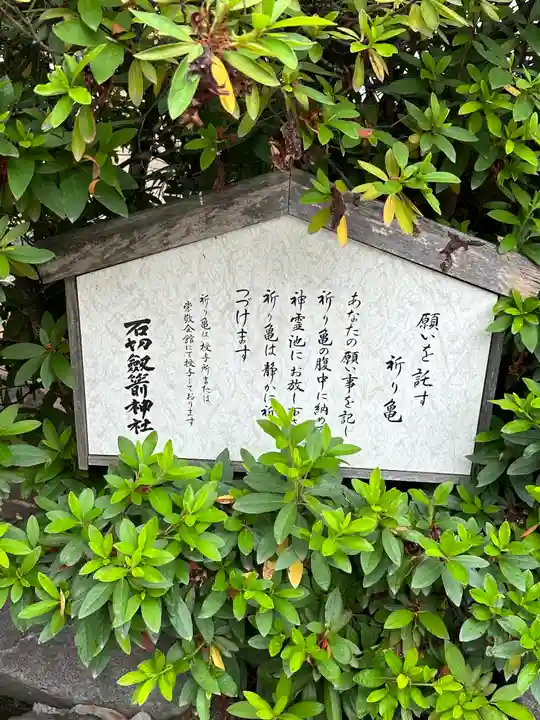 願いを託す
祈り亀
あなたの願い事を記し
祈り亀の腹中に納め
神霊池にお放し下
祈り亀は静かに祈
つづけます
祈り亀は授与所または
崇敬会館にて授与しております
石切劔箭神社